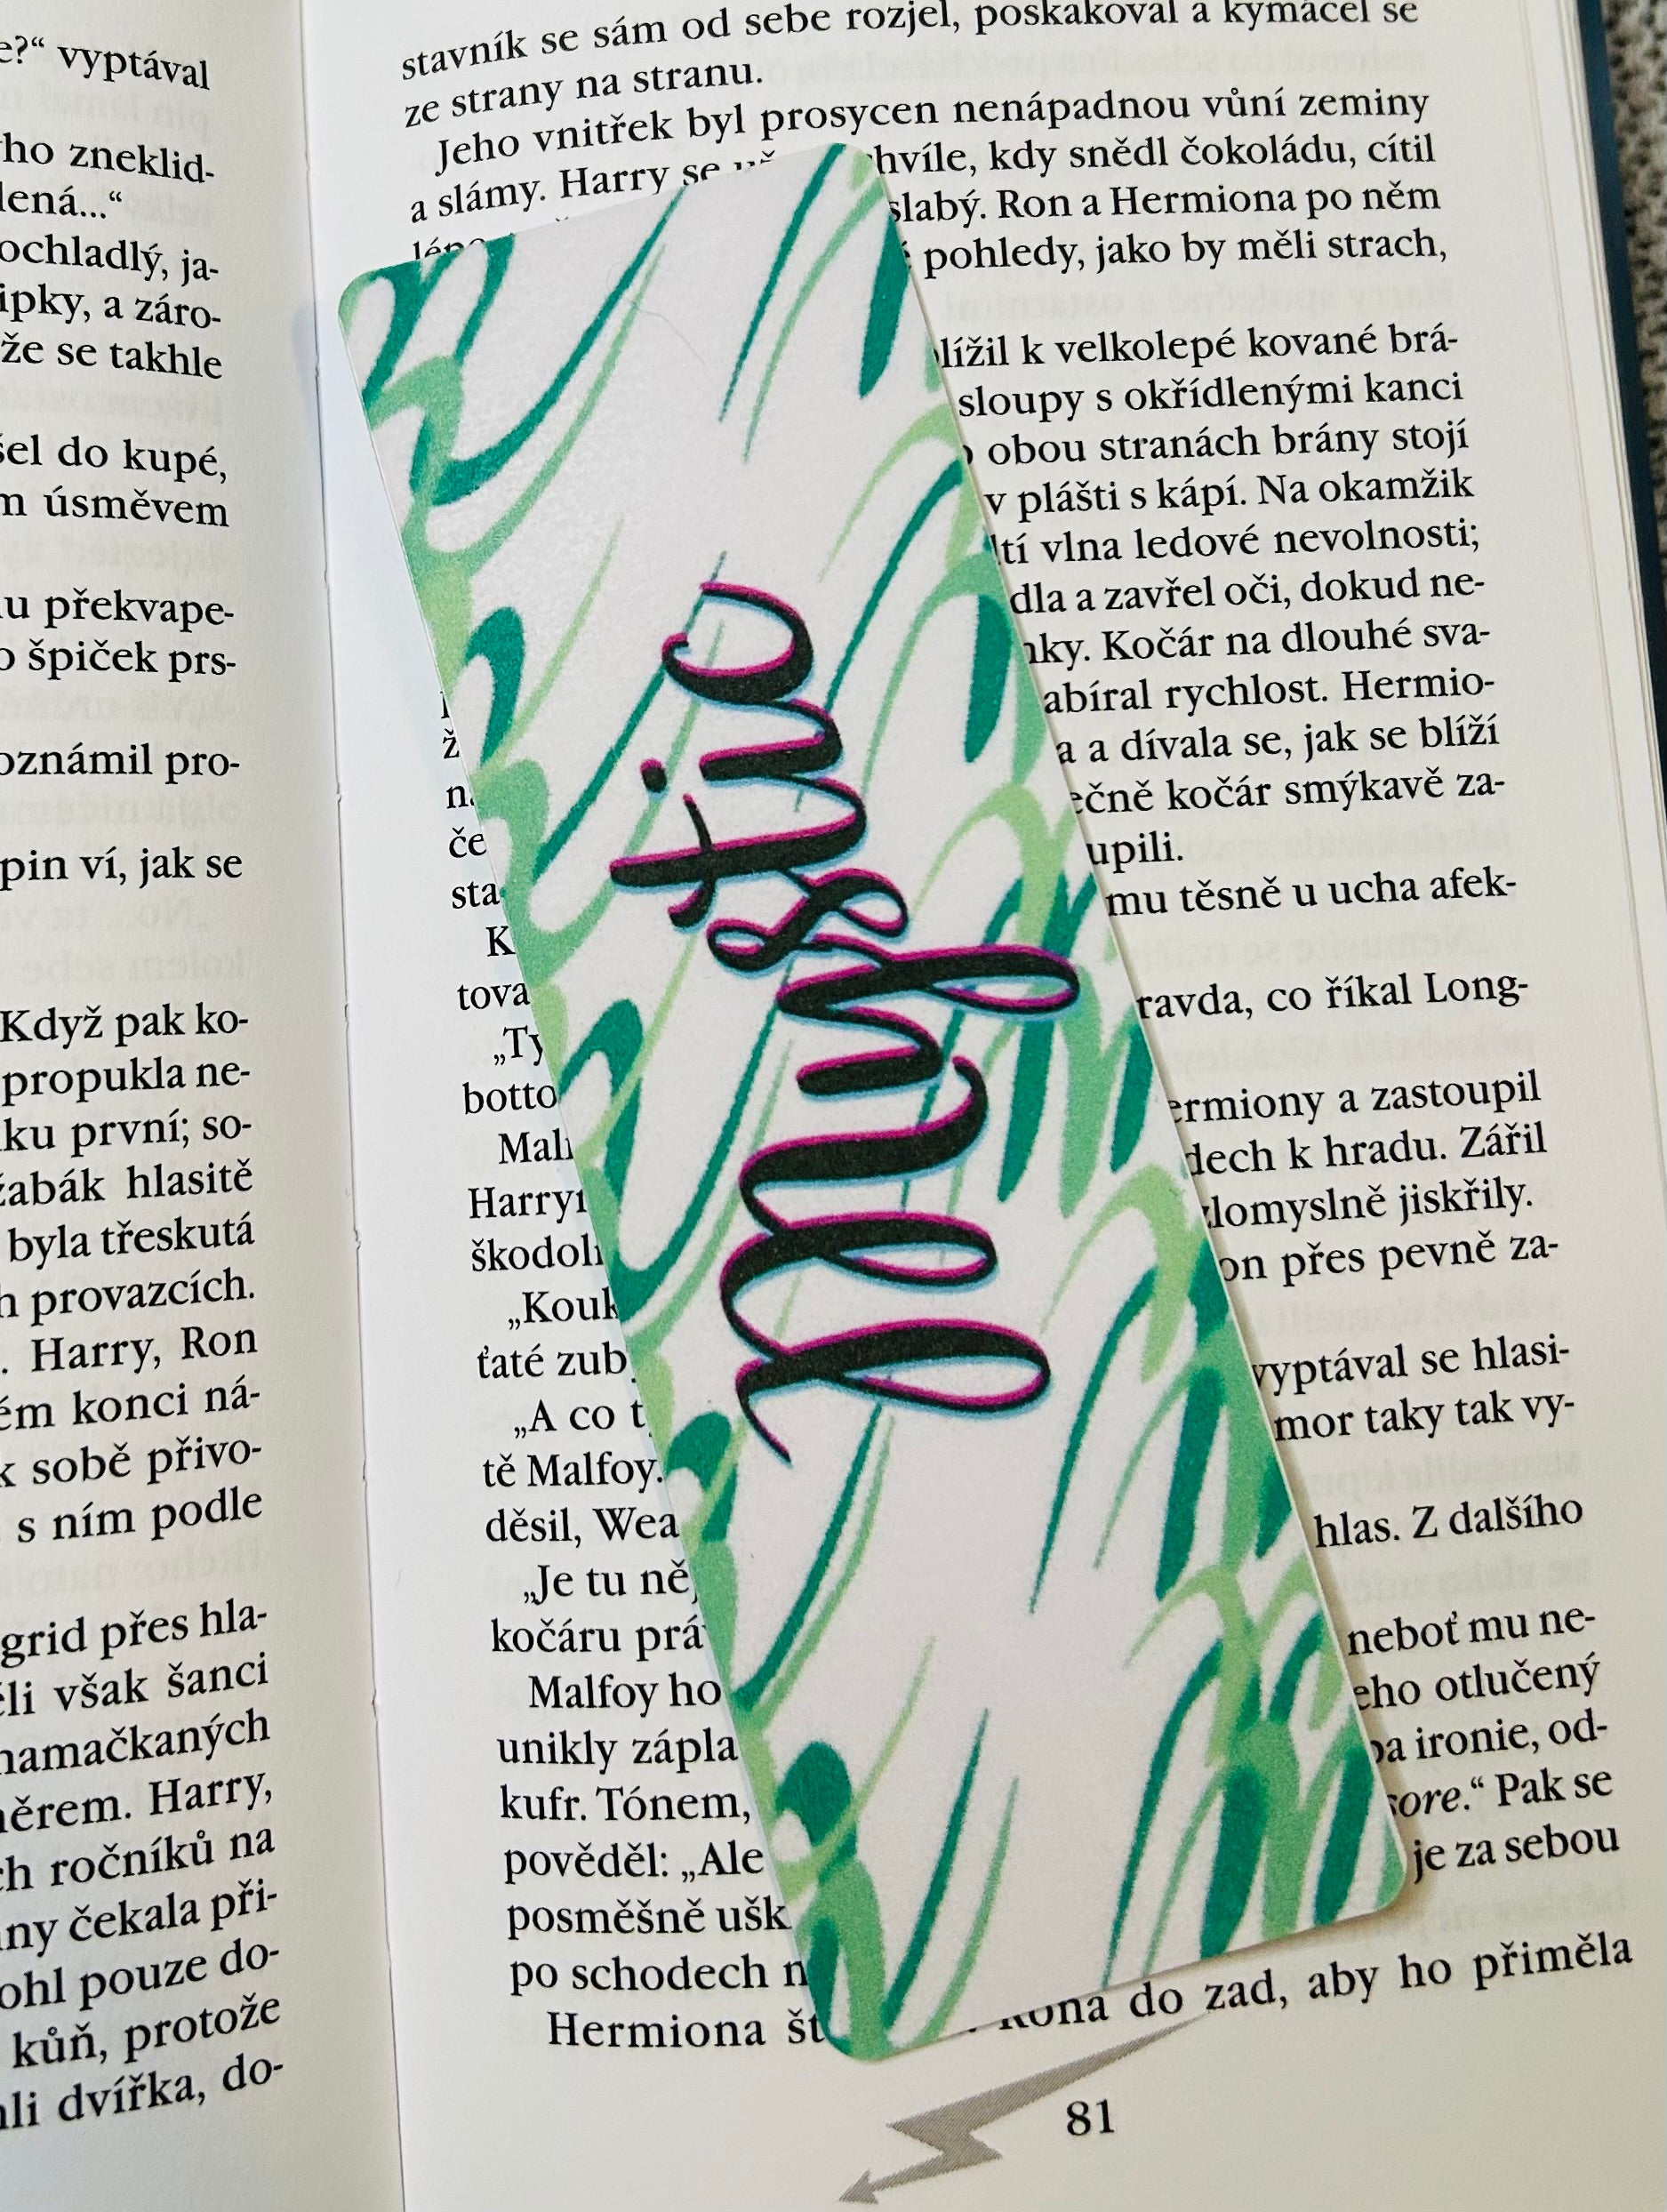 e?“ vyptával
ho zneklid-
lená...“
ochladlý, ja-
ipky, a záro-
že se takhle
šel do kupé,
m úsměvem
u překvape-
o špiček prs-
oznámil pro-
pin ví, jak se
Když pak ko-
propukla ne-
ku první; so-
žabák hlasitě
byla třeskutá
h provazcích.
. Harry, Ron
ém konci ná-
k sobě přivo-
s ním podle
grid přes hla-
li však šanci
namačkaných
ěrem. Harry,
ch ročníků na
ny čekala při-
ohl pouze do-
kůň, protože
li dvířka, do-
stavník se sám od sebe rozjel, poskakoval a kymácel se
ze strany na stranu.
Jeho vnitřek byl prosycen nenápadnou vůní zeminy
a slámy. Harry se už hvíle, kdy snědl čokoládu, cítil
slabý. Ron a Hermiona po něm
pohledy, jako by měli strach,
lížil k velkolepé kované brá-
sloupy s okřídlenými kanci
obou stranách brány stojí
v plášti s kápí. Na okamžik
tí vlna ledové nevolnosti;
dla a zavřel oči, dokud ne-
nky. Kočár na dlouhé sva-
abíral rychlost. Hermio-
ž a a dívala se, jak se blíží
n ečně kočár smýkavě za-
če upili.
sta mu těsně u ucha afek-
K
tova ravda, co říkal Long-
„Ty
botto ermiony a zastoupil
Mal dech k hradu. Zářil
Harry zlomyslně jiskřily.
škodol on přes pevně za-
„Kouk
ťaté zub vyptával se hlasi-
„A co t mor taky tak vy-
tě Malfoy.
děsil, Wea hlas. Z dalšího
„Je tu ně
kočáru prá neboť mu ne-
Malfoy ho eho otlučený
unikly zápla ba ironie, od-
kufr. Tónem, sore.“ Pak se
pověděl: „Ale je za sebou
posměšně ušk
po schodech n
Hermiona št Rona do zad, aby ho přiměla
81